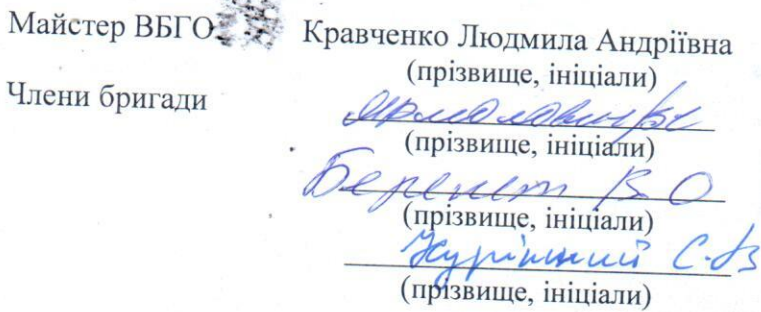 Майстер ВБГО Кравченко Людмила Андріївна
(прізвище, ініціали)
Члени бригади
(прізвище, ініціали)
В О
(прізвище, ініціали)
С.В
(прізвище, ініціали)